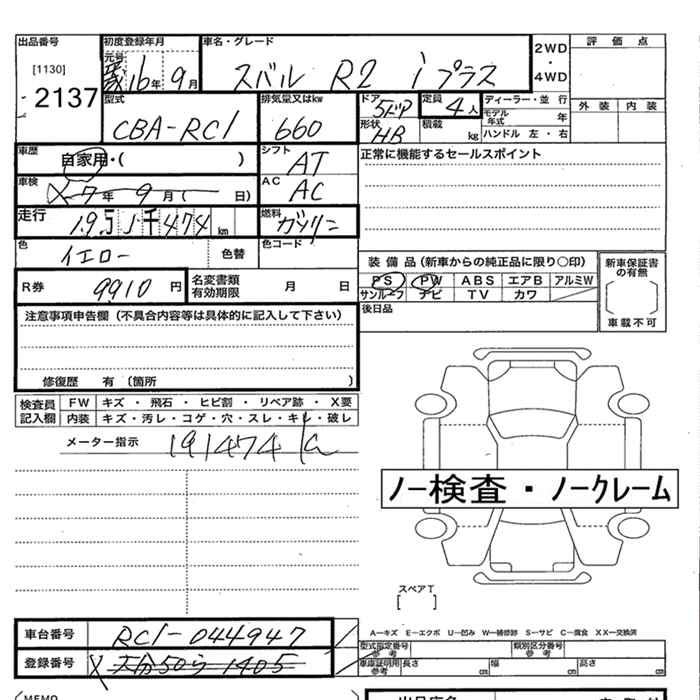 出品番号 初度登録年月 車名・グレード 2WD・4WD 評価点
[1130] 2137 元号 16年 9月 スバル R2 iプラス
外装 内装
型式 排気量又はkw ドア 定員 4人 ディーラー・並行
CBA-RC1 660 形状 HB 積載 kg モデル年式 年
ハンドル 左・右
車歴 自家用・( ) シフト AT 正常に機能するセールスポイント
車検 X 7年 9月( 日) AC AC
走行 474 km 燃料 ガソリン
色 イエロー 色替 色コード
装備品(新車からの純正品に限り○印) 新車保証書の有無
R券 9910円 名変書類有効期限 月 日
PS PW ABS エアB アルミW
サンルーフ ナビ TV カワ
車載不可
後日品
注意事項申告欄(不具合内容等は具体的に記入して下さい)
修復歴 有〔箇所 〕
検査員記入欄 FW キズ・飛石・ヒビ割・リペア跡・X要
内装 キズ・汚レ・コゲ・穴・スレ・キレ・破レ
メーター指示 191474 km
ノー検査・ノークレーム
スペアT
[ ]
車台番号 RC1-044947
A−キズ E−エクボ U−凹み W−補修跡 S−サビ C−腐食 XX−交換済
型式指定番号 参考 類別区分番号 参考
登録番号 X 大分50ら1405
車庫証明用 参考 長さ cm 幅 cm 高さ cm
(MEMO
出品店名